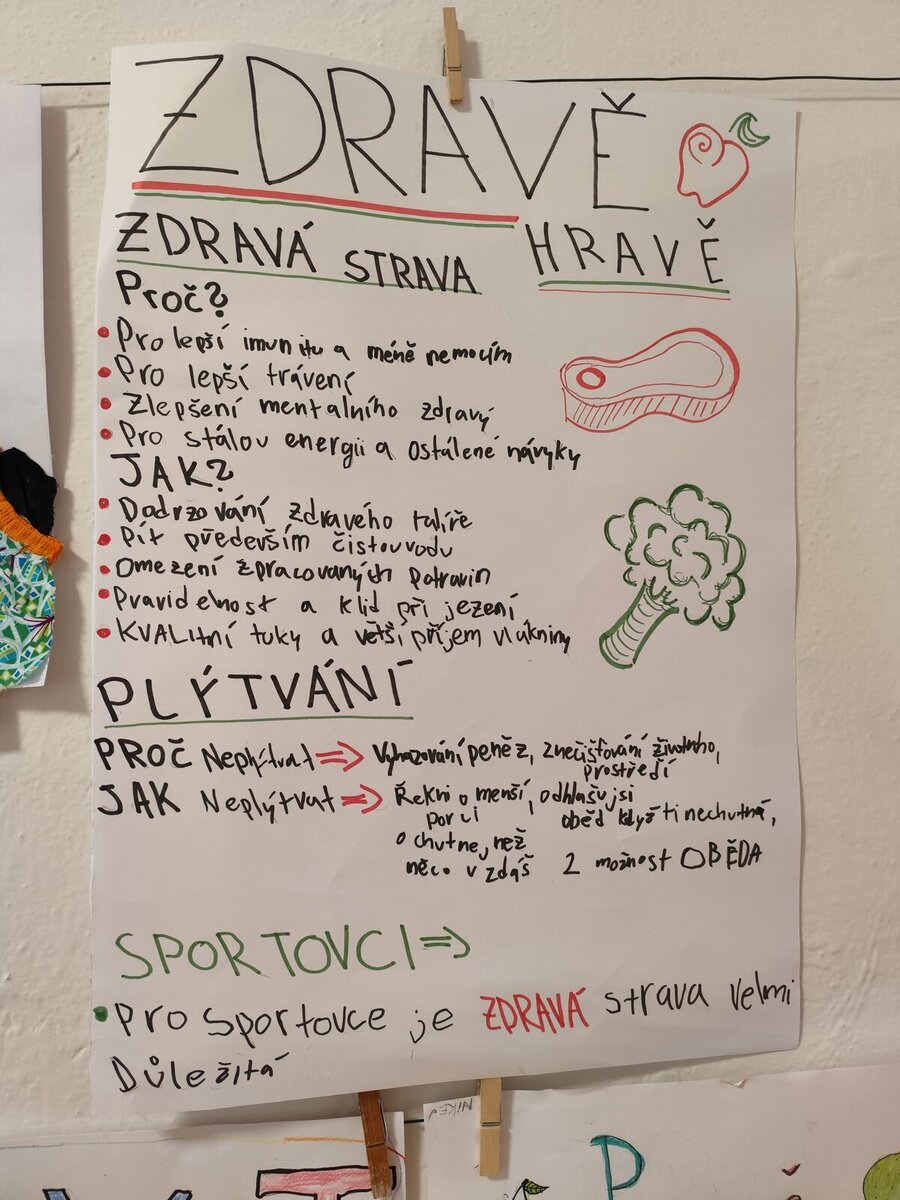 ZDRAVĚ
HRAVĚ
ZDRAVÁ STRAVA
Proč?
Pro lepší imunitu a méně nemocím
Pro lepší trávení
Zlepšení mentalního zdravý
Pro stálov energii a ostálené návyky
JAK?
Dodrzování zdravého talíře
Pít především čistou vodu
Omezení zpracovaných potravin
Pravidelnost a klid při jezení
KVALITNÍ tuky a větší příjem vlákniny
PLÝTVÁNÍ
PROČ Neplýtvat => Vyhazování peněz, znečišťování životního,
prostředí
JAK Neplýtvat => Řekni o menší, odhlašuj si
porci oběd když ti nechutná,
ochutnej, než
něco vzdáš 2 možnost OBĚDA
SPORTOVCI =>
Pro sportovce je ZDRAVÁ strava velmi
Důležitá
MIKEŠ
P